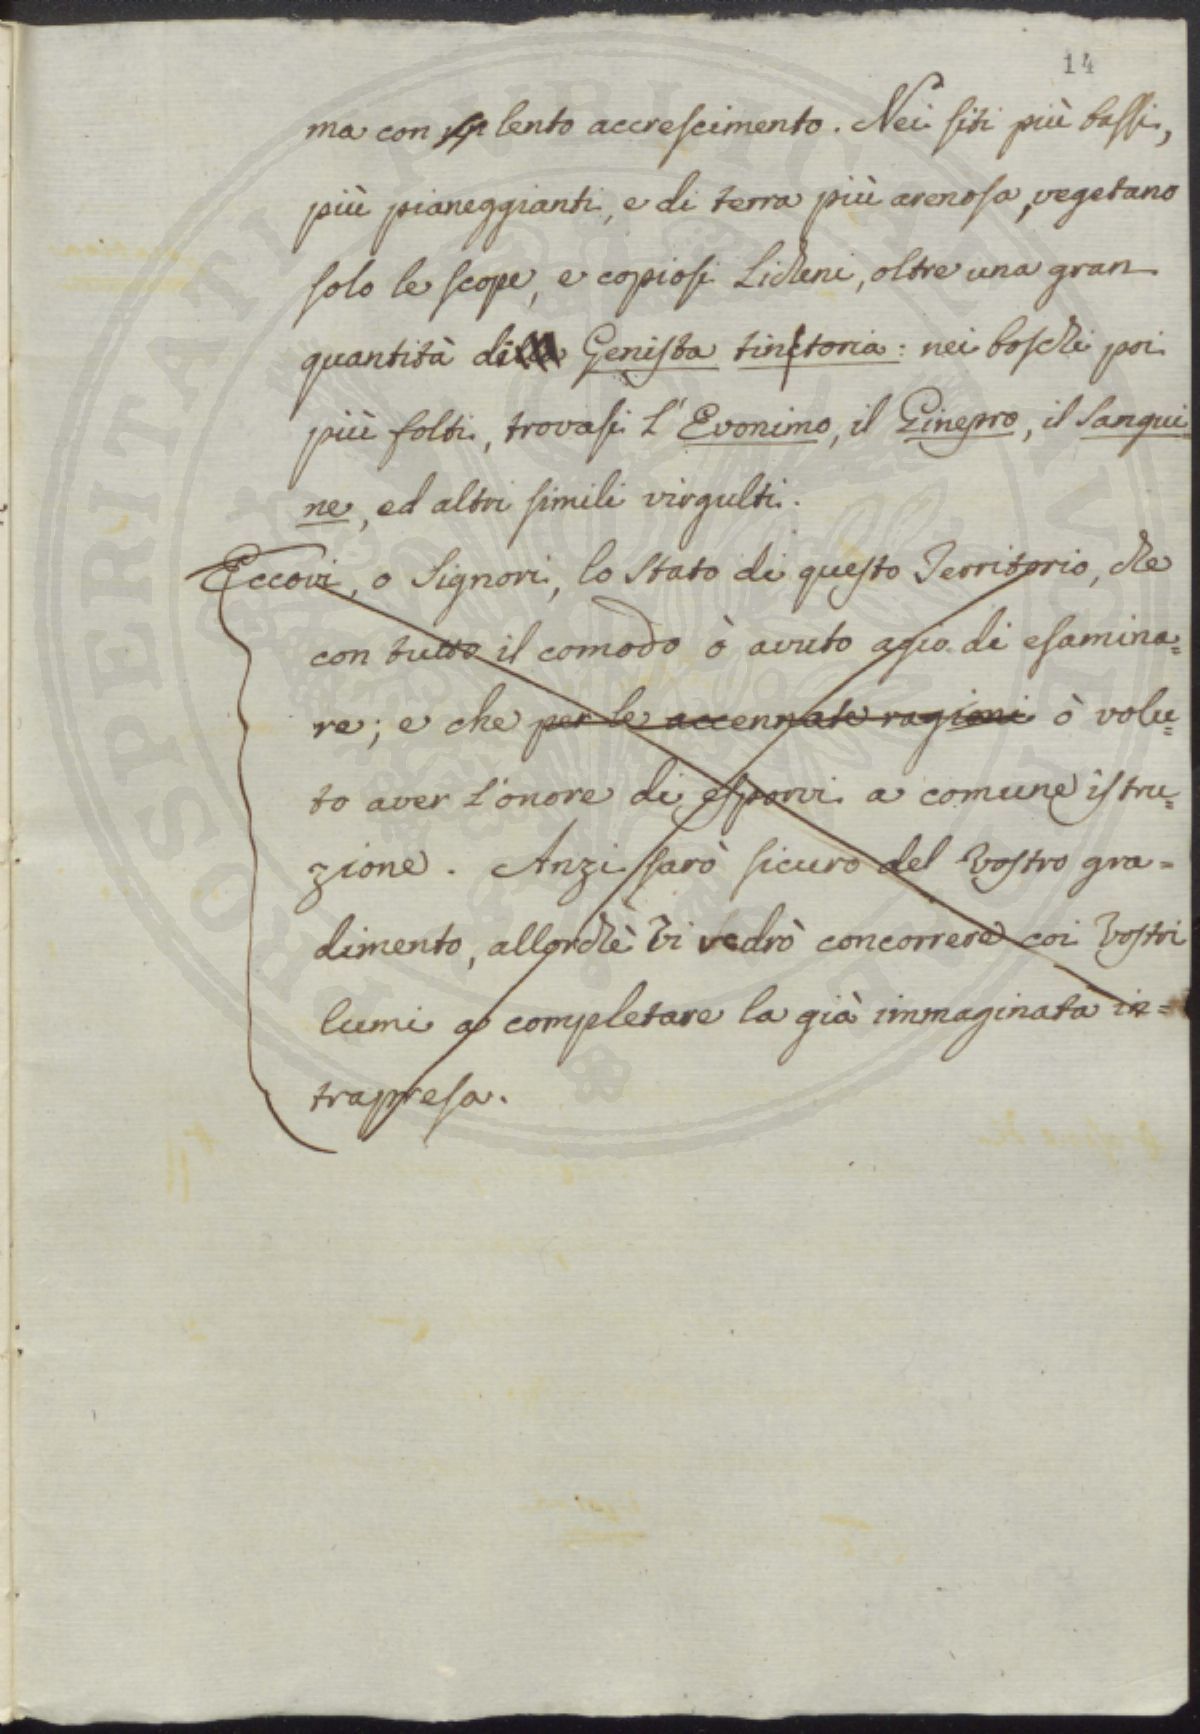 14
ma con lento accrescimento. Nei siti più bassi,
più pianeggianti, e di terra più arenosa, vegetano
solo le scope, e copiosi Licheni, oltre una gran
quantità di Genista tinctoria: nei boschi poi
più folti, trovasi l'Evonimo, il Ginepro, il Sangui=
ne, ed altri simili virgulti.
Eccovi, o Signori, lo stato di questo Territorio, che
con tutto il comodo ò avuto agio di esamina=
re; e che per le accennate ragioni ò volu=
to aver l'onore di esporvi a comune istru=
zione. Anzi sarò sicuro del Vostro gra=
dimento, allorchè Vi vedrò concorrere coi Vostri
lumi a completare la già immaginata in=
trapresa.
PROSPERITATI PUBLICAE AUGENDAE